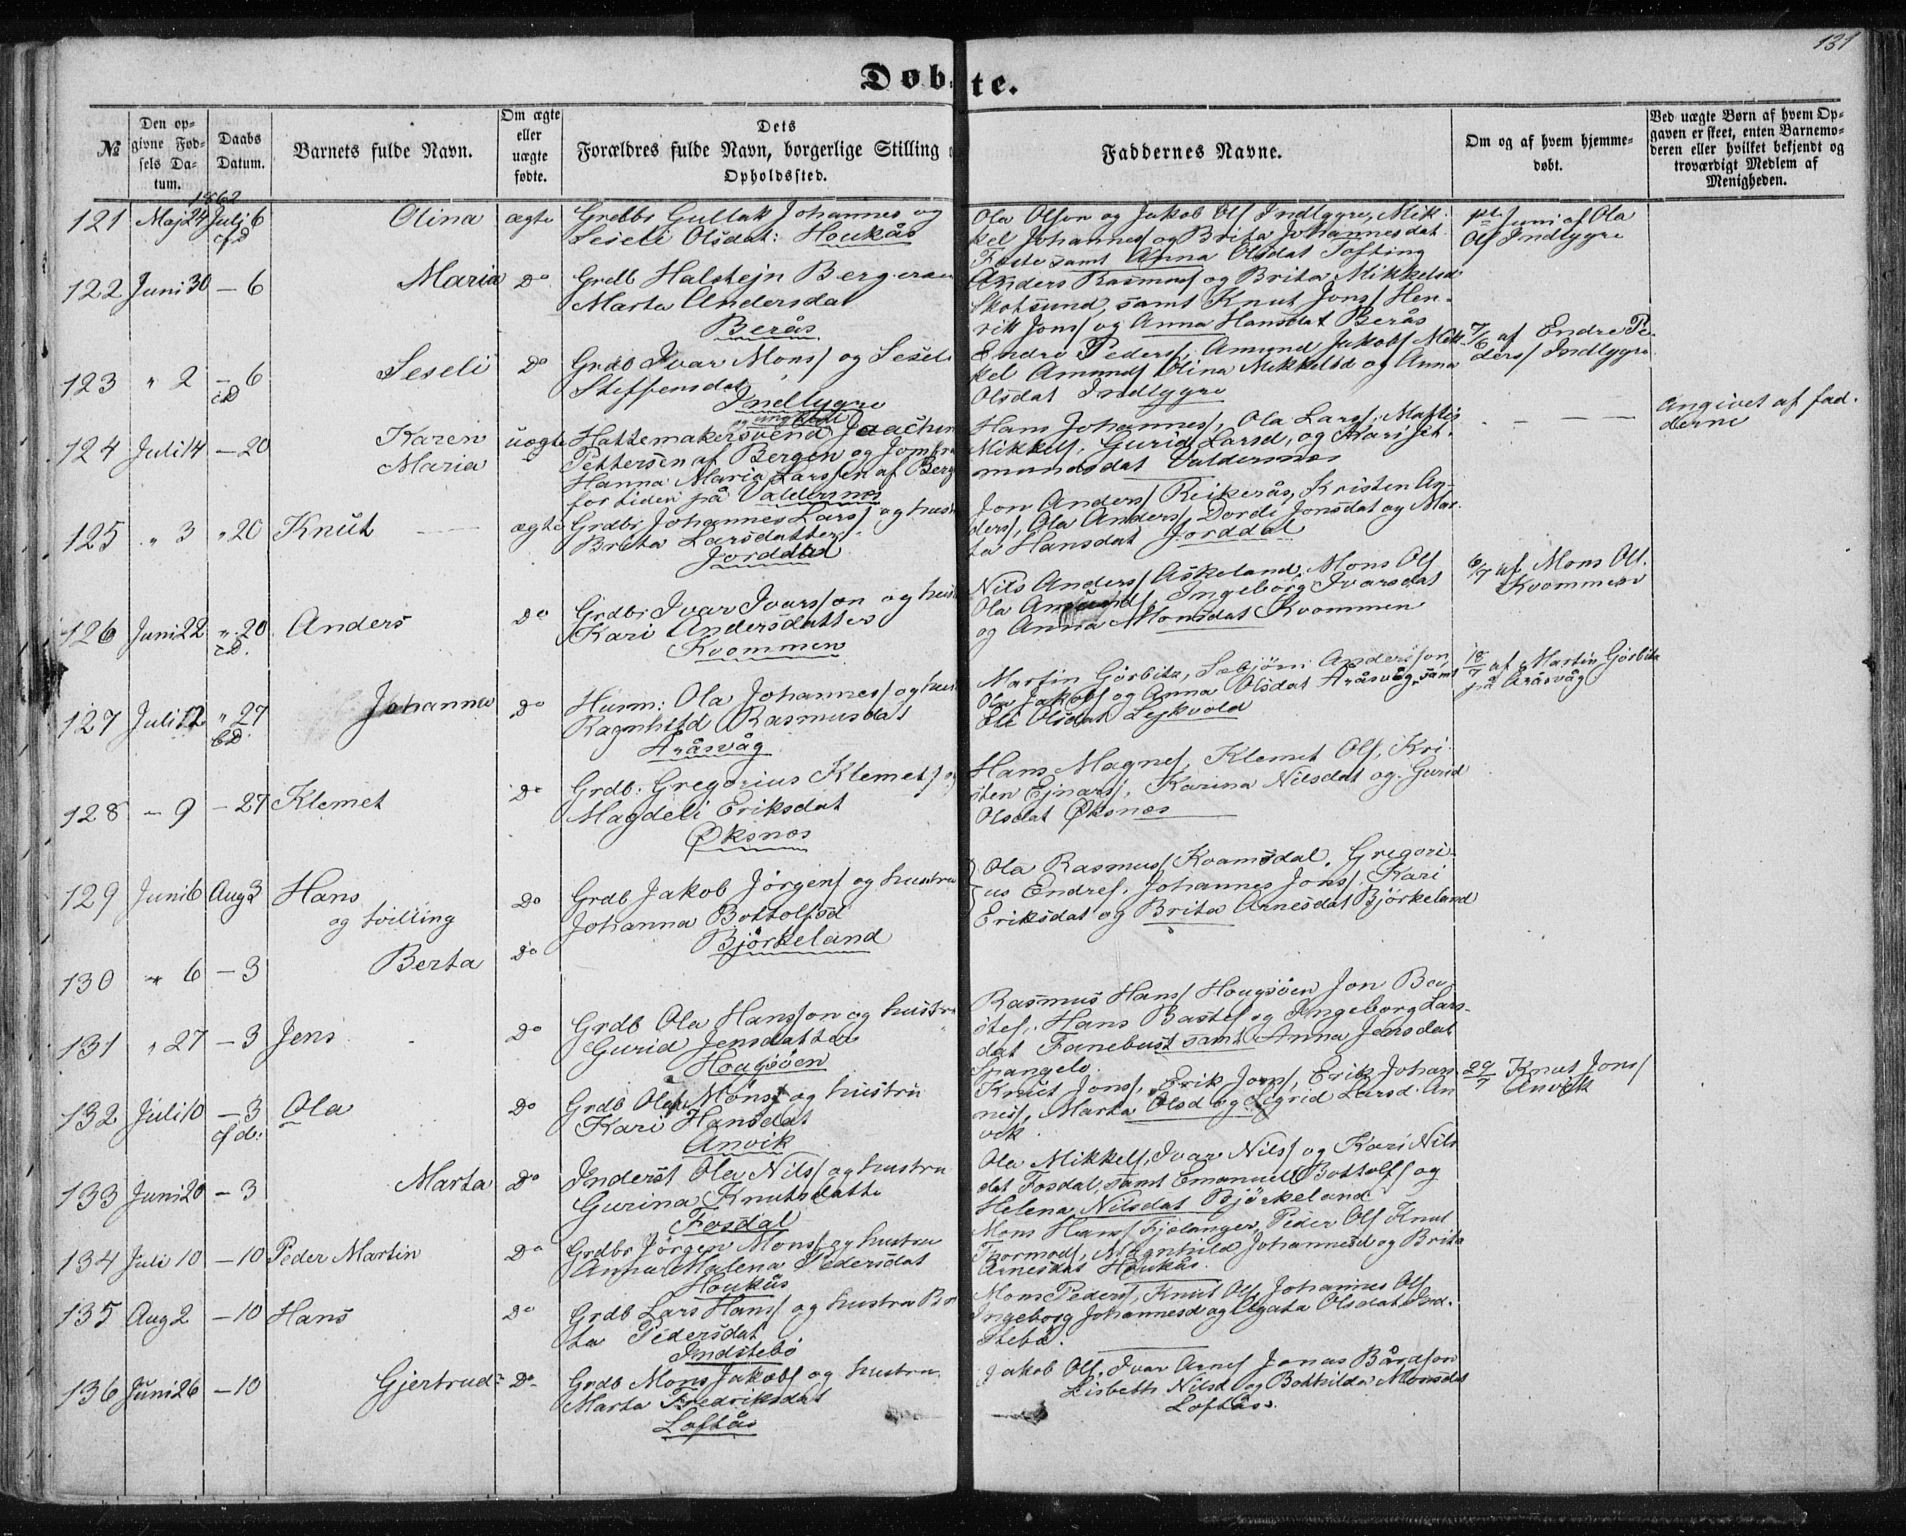 131
Døbte.
№
Den opgivne Fødsels Datum.
Daabs Datum.
Barnets fulde Navn.
Om ægte eller uægte fødte.
Dets Forældres fulde Navn, borgerlige Stilling
Opholdssted.
Faddernes Navne.
Om og af hvem hjemmedøbt.
Ved uægte Børn af hvem Opgaven er skeet, enten Barnemoderen eller hvilket bekjendt og troværdigt Medlem af Menigheden.
1862
121 Maj 24 Juli 6 Olina ægte
Grdbr Gullak Johannes og
Seseli Olsdat: Houkås
Ola Olson og Jakob Ols Indlygre, Mik-
kel Johannes og Brita Johannesdat
Foste samt Anna Olsdat Tofting
af Ola
Ols Indlygre
122 Juni 30 – 6 Maria Do
Grdb Halstejn Berge
Marta Andersdat
Berås
Anders Rasmus og Brita Mikkelsd
Skotsund, samt Knut Jons, Hen-
rik Jons og Anna Hansdat Berås
123 " 2 – 6 Seseli Do
Grdb Ivar Mons og Sesel
Steffensdat
Indlygre
Endre Peders, Amund Jakobs, Mik-
kel Amunds, Olina Mikkelsd og Anna
Olsdat Indlygre
7/6 af Endre Pe-
ders Indlygre
124 Juli 14 – 20 Karen
Maria
uægte
ungkarl
Hattemakersvend Joachim
Pettersen af Bergen og Jomfru
Hanna Maria Larssen af Berg
for tiden på Valdersnes
Hans Johannes, Ola Lars, Mattis
Mikkels, Gurid Larsd, og Kari Jet-
mundsdat Valdersnes
– —
angivet af fad-
derne
125 " 3 " 20 Knut ægte
Grdbr Johannes Lars og hust
Brita Larsdatter
Jorddal
Jon Anders Reikerås, Kristen An-
ders, Ola Anders, Dordi Jonsdat og Mar-
ta Hansdat Jorddal
126 Juni 22 " 20 Anders Do
Grdbr Ivar Ivarsson og hust
Kari Andersdatter
Kvommen
Nils Anders Askeland, Mons Ols
Ola Amunds, Ingeborg Ivarsdat
og Anna Monsdat Kvommen
6/7 af Mons Ols
Kvommen
127 Juli 12 " 27 Johanna Do
Husm: Ola Johannes og hust
Ragnhild Rasmusdat
Aråsvåg
Martin Görbitz, Sebjörn Anderson,
Ola Jakobs og Anna Olsdat Aråsvåg, samt
Eli Olsdat Lejkvold
18/7 af Martin Görbitz
på Aråsvåg
128 – 9 – 27 Klemet Do
Grdb: Gregorius Klemets
Magdeli Eriksdat
Øksnes
Hans Magnes, Klemet Ols, Kri-
sten Ejnars, Karina Nilsdat og Gurid
Olsdat Øksnes
129 Juni 6 Aug 3 Hans
og tvilling
Do
Grdb Jakob Jörgens og hustru
Johanna Bottolfsd
Björkeland
Ola Rasmus Kvamsdal, Gregori-
us Endres, Johannes Jons, Kari
Eriksdat og Brita Arnesdat Björkeland
130 " 6 – 3 Berta Do
131 " 27 – 3 Jens Do
Grdb Ola Hansson og hustru
Gurid Jensdatter
Hougsöen
Rasmus Hans Hougsöen Jon Ba-
stes, Hans Bastes og Ingeborg Lars-
dat Fanebust samt Anna Jensdat
Spangelo
132 Juli 10 – 3 Ola Do
Grdb Ola Mons og hustru
Kari Hansdat
Anvik
Knut Jons, Erik Jons, Erik Johan-
nes, Marta Olsd og Sigrid Larsd. An-
vik
29/7 Knut Jons
Anvik
133 Juni 20 – 3 Marta Do
Inderst Ola Nils og hustru
Gurina Knutsdatte
Fosdal
Ola Mikkels, Ivar Nils og Kari Nils-
dat Fosdal, samt Emanuel Bottolfs og
Helena Nilsdat Björkeland
134 Juli 10 – 10 Peder Martin Do
Grdbr Jörgen Mons og hustru
Anna Malena Pedersdat
Houkås
Mons Hans Fjelanger, Peder Ols, Knut
Thormods, Magnhild Johannesd og Brita
Arnesdat Houkås.
135 Aug 2 – 10 Hans Do
Grdb Lars Hans og hustru Bri
ta Pedersdat
Indstebö
Mons Peders, Knut Ols, Johannes Ols
Ingeborg Johannesd og Agata Olsdat Ind-
stebö.
136 Juni 26 – 10 Gjertrud Do
Grdb Mons Jakobs og hustru
Marta Fredriksdat
Loftås
Jakob Ols, Ivar Arnes Jonas Bårdson
Lisbeth Nilsd og Bothilda Monsdat
Loftås.